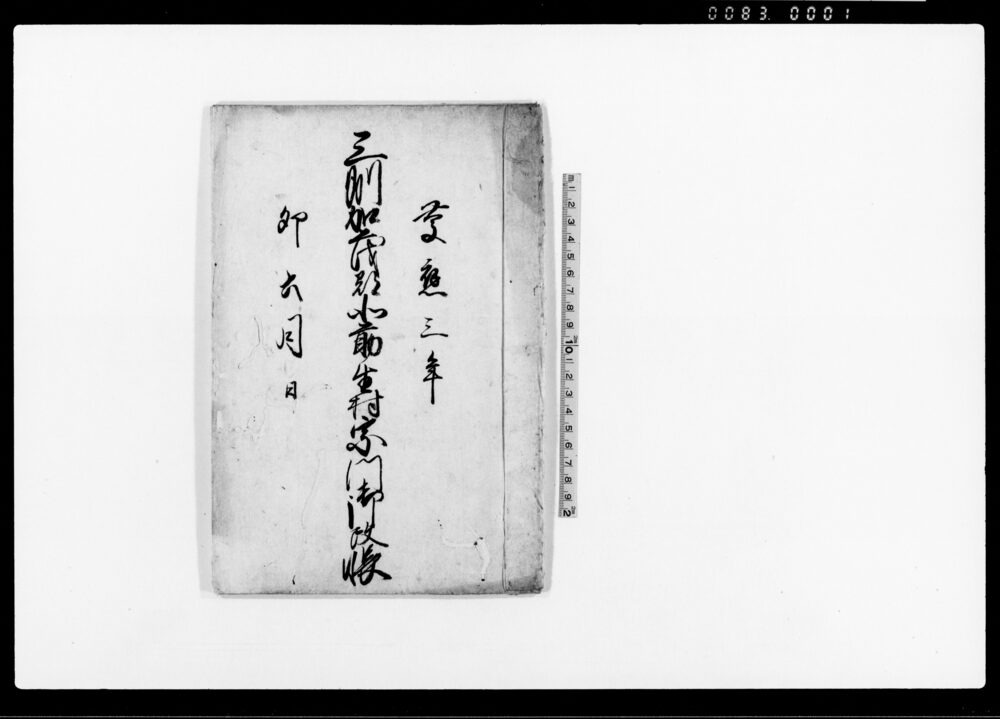 0083. 0001
慶應三年
三州加茂郡北莇生村宗門御改帳
卯六月日
m 1 2 3 4 5 6 7 8 9 10 1 2 3 4 5 6 7 8 9 2